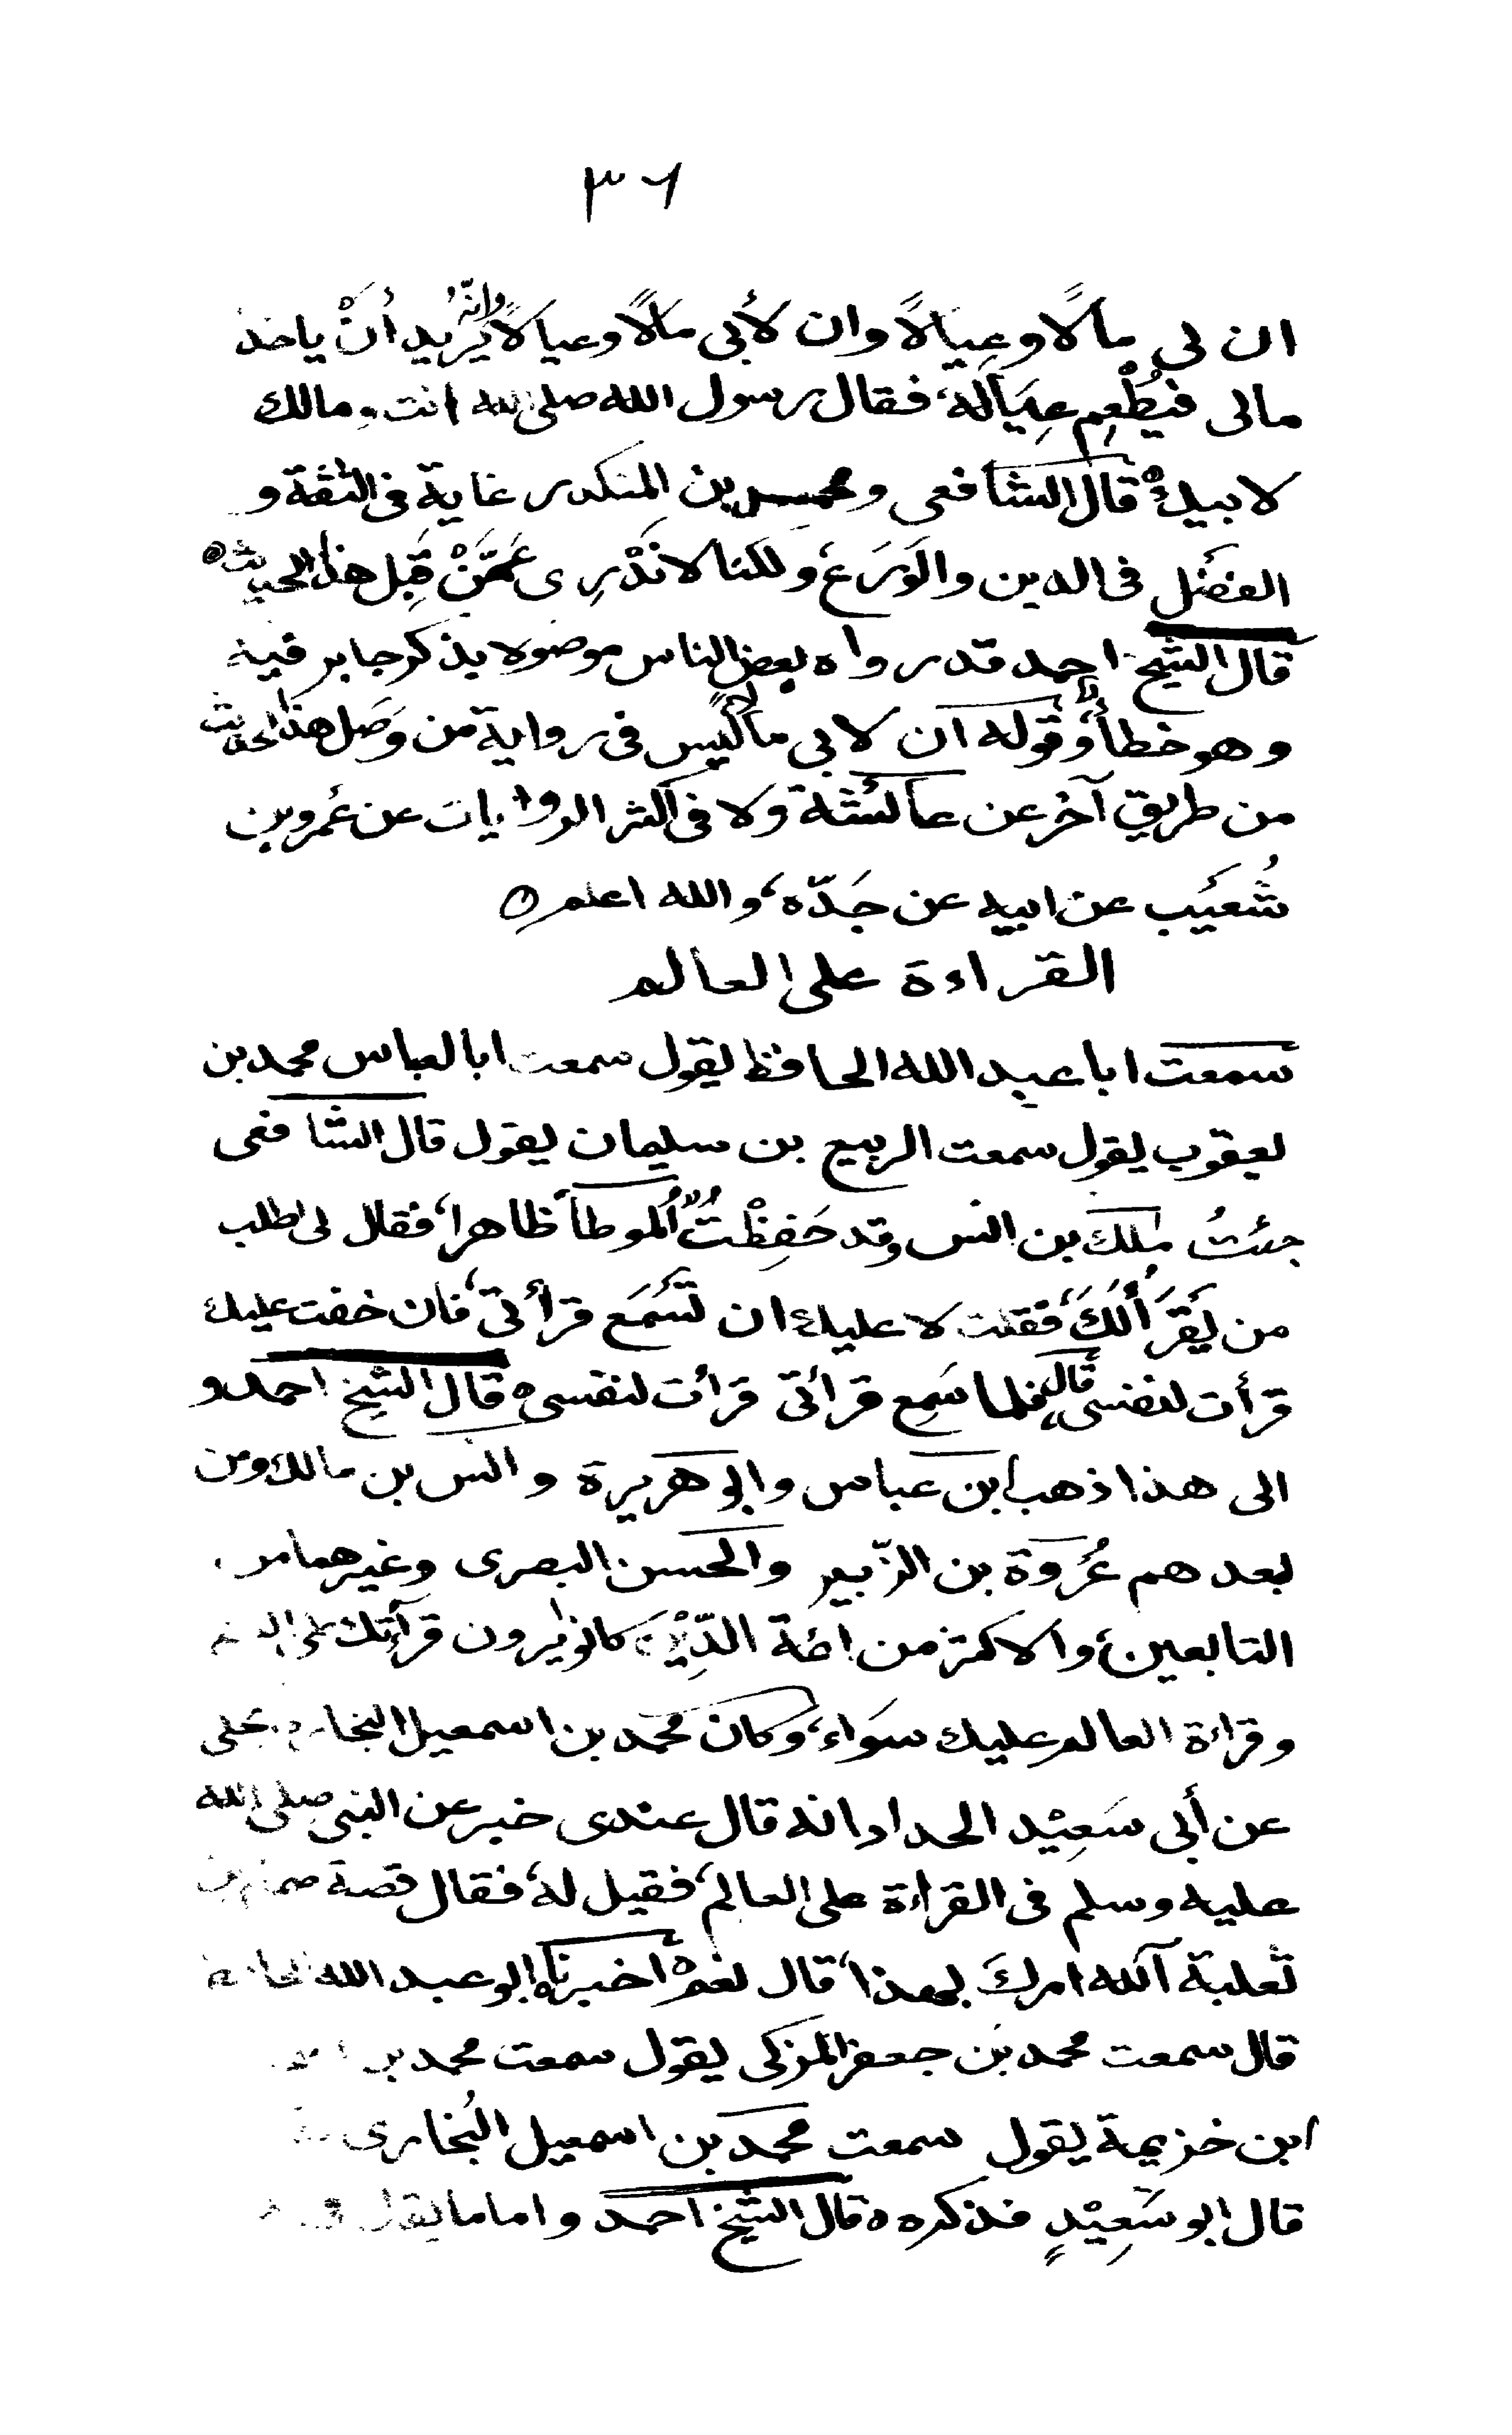 ٣٦
ان لى مالًا وعِيالًا وان لأبى مالًا وعيالًا وانّه يُريد أنْ ياخذ
مالى فيُطْعِم عِيَالَه، فقال رسول الله صلى الله انت ومالك
لابيك ه قال الشافعى ومحمد بن المنكدر غاية فى الثقة و
الفضل فى الدين والوَرَع، ولكنا لا نَدْرِى عَمَّنْ قَبِل هذا الحديث ه
قال الشيخ احمد قد رواه بعض الناس موصولا بذكر جابر فيه
وهو خطأ، وقوله ان لابى مالًا ليس فى رواية من وَصَل هذا الحديث
من طريق آخر عن عائشة ولا فى اكثر الروايات عن عُمرو بن
شُعَيب عن ابيه عن جَدّه، والله اعلم ه
القراءة على العالم
سمعت ابا عبد الله الحافظ يقول سمعت ابا العباس محمد بن
يعقوب يقول سمعت الربيع بن سليمان يقول قال الشافعى
جئتُ ملك بن انس وقد حَفِظْتُ الموطأ ظاهرا، فقال لى اطلب
من يَقرَأُ لَكَ، فقلت لا عليك ان تَسْمَع قرأتى، فان خفت عليك
قرأت لنفسى، قال فلما سَمِع قرائتى قرائت لنفسى ه قال الشيخ احمد و
الى هذا ذهب ابن عباس وابو هريرة وانس بن مالك ومن
بعدهم عُروَة بن الزّبير والحسن البصرى وغيرهما من
التابعين، والاكثر من ائمة الدِّيْن كانوا يرون قرآتك على
وقراءة العالم عليك سَواء، وكان محمد بن اسمعيل البخارى يحكى
عن أبى سَعِيْد الحداد انه قال عندى خبر عن النبى صلى الله
عليه وسلم فى القراءة على العالم، فقيل له، فقال قصة ضمام بن
ثعلبة آلله امركَ بهذا، قال نعم ه اخبرناه ابو عبد الله الحافظ
قال سمعت محمد بن جعفر المزكى يقول سمعت محمد بن
ابن خزيمة يقول سمعت محمد بن اسمعيل البُخارى
قال ابو سَعِيْدٍ فذكره ه قال الشيخ احمد واما ما يقال